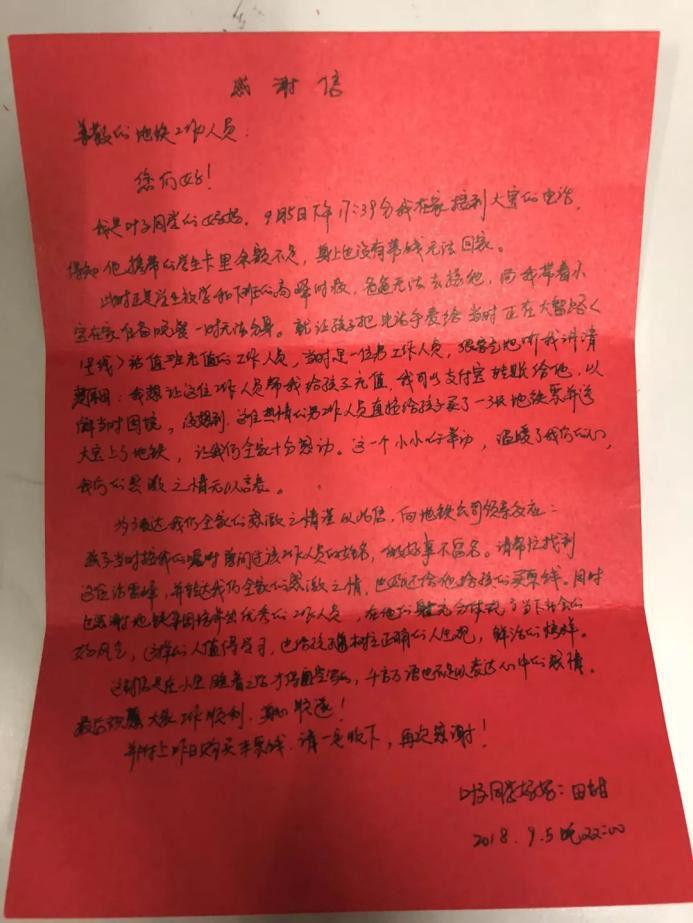 感谢信
尊敬的地铁工作人员:
您们好!
我是叶子同学的妈妈,9月5日下午17:39分我在家接到大宝的电话,
得知他携带的学生卡里余额不足,身上也没有带钱无法回家。
此时正是学生放学和下班的高峰时段,爸爸无法去接他,而我带着小
宝在家准备晚餐一时无法分身。就让孩子把电话手表给当时正在大智路(
号线)站值班充值的工作人员,当时是一位男工作人员,很客气地听我讲清
原因:我想让这位工作人员帮我给孩子充值,我可以支付宝转账给他,以
解当时困境。没想到,这位热情的男工作人员直接给孩子买了一张地铁票并送
大宝上了地铁,让我们全家十分感动。这一个小小的举动,温暖了我们的心,
我们的感激之情无以言表。
为了表达我们全家的感激之情谨以此信,向地铁公司领导反应:
孩子当时按我的嘱咐询问过该工作人员的姓名,他做好事不留名。请帮忙找到
这位活雷锋,并转达我们全家的感激之情,也好还给他给孩子的买票钱。同时
也感谢地铁集团培养出优秀的工作人员,在他们身上充分体现了当下社会的
好风气,这样的人值得学习,也给孩子树立正确的人生观,鲜活的榜样。
这封信是在小宝睡着之后才得空写的,千言万语也不足以表达心中的感情。
最后祝愿大家工作顺利,事事顺遂!
并附上昨日购买车票钱,请一定收下,再次感谢!
叶子同学妈妈:田甜
2018.9.5晚22:00